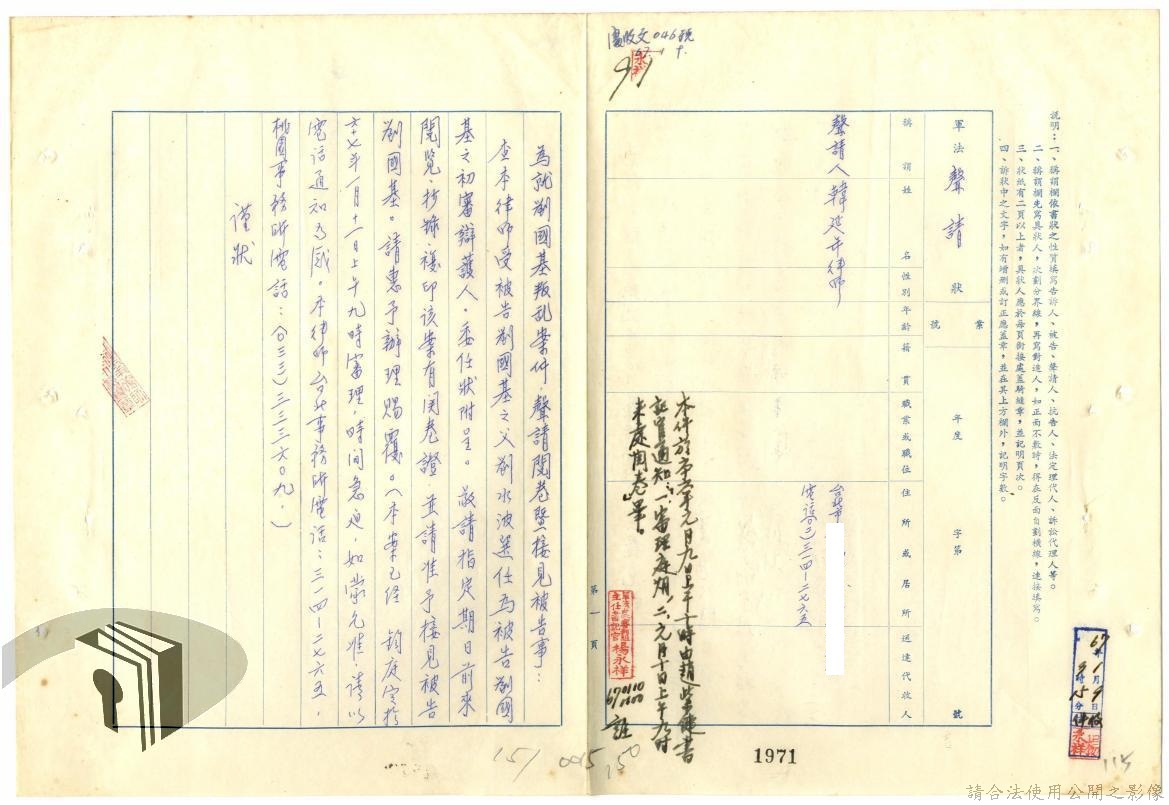 說明:一、稱謂欄依書狀之性質填寫告訴人、被告、聲請人、抗告人、法定理代人、訴訟代理人等。
二、稱謂欄先寫具狀人,次劃分界線,再寫對造人,如正面不敷時,得在反面自劃橫線,連接填寫。
三、狀紙有二頁以上者,具狀人應於每頁銜接處蓋騎縫章,並記明頁次。
四、訴狀中之文字,如有增刪或訂正應蓋章,並在其上方欄外,記明字數。
軍法聲請狀
案號
年度 字第 號
稱謂 姓名 性別 年齡 籍貫 職業或職位 住所或居所 送達代收人
聲請人 韓延年律師
台北市
電話(〇二)三一四一二七六五
收文046號
本件於市六七年元月九日上午十時由趙
記官通知一、審理庭期,二、元月十日上午九時
來庭閱卷畢。
主任書記官楊永祥
670110
1000
註
第一頁
67年1月9日
9時15分
1971
115
為就劉國基叛乱案件,聲請閱卷暨接見被告事:
查本律師受被告劉國基之父劉水波選任為被告劉國
基之初審辯護人,委任狀附呈。敬請指定期日前來
閱覽、抄錄、複印該案有関卷證,並請准予接見被告
劉國基。請惠予辦理賜覆。(本案已經 鈞庭定於
六十七年一月十一日上午九時審理,時间急迫,如蒙允准,請以
電話通知為感。本律師台北事務所電話:三一四一二七六五,
桃園事務所電話:(〇三三)三三三六〇九。)
謹狀
151
0015
150
請合法使用公開之影像